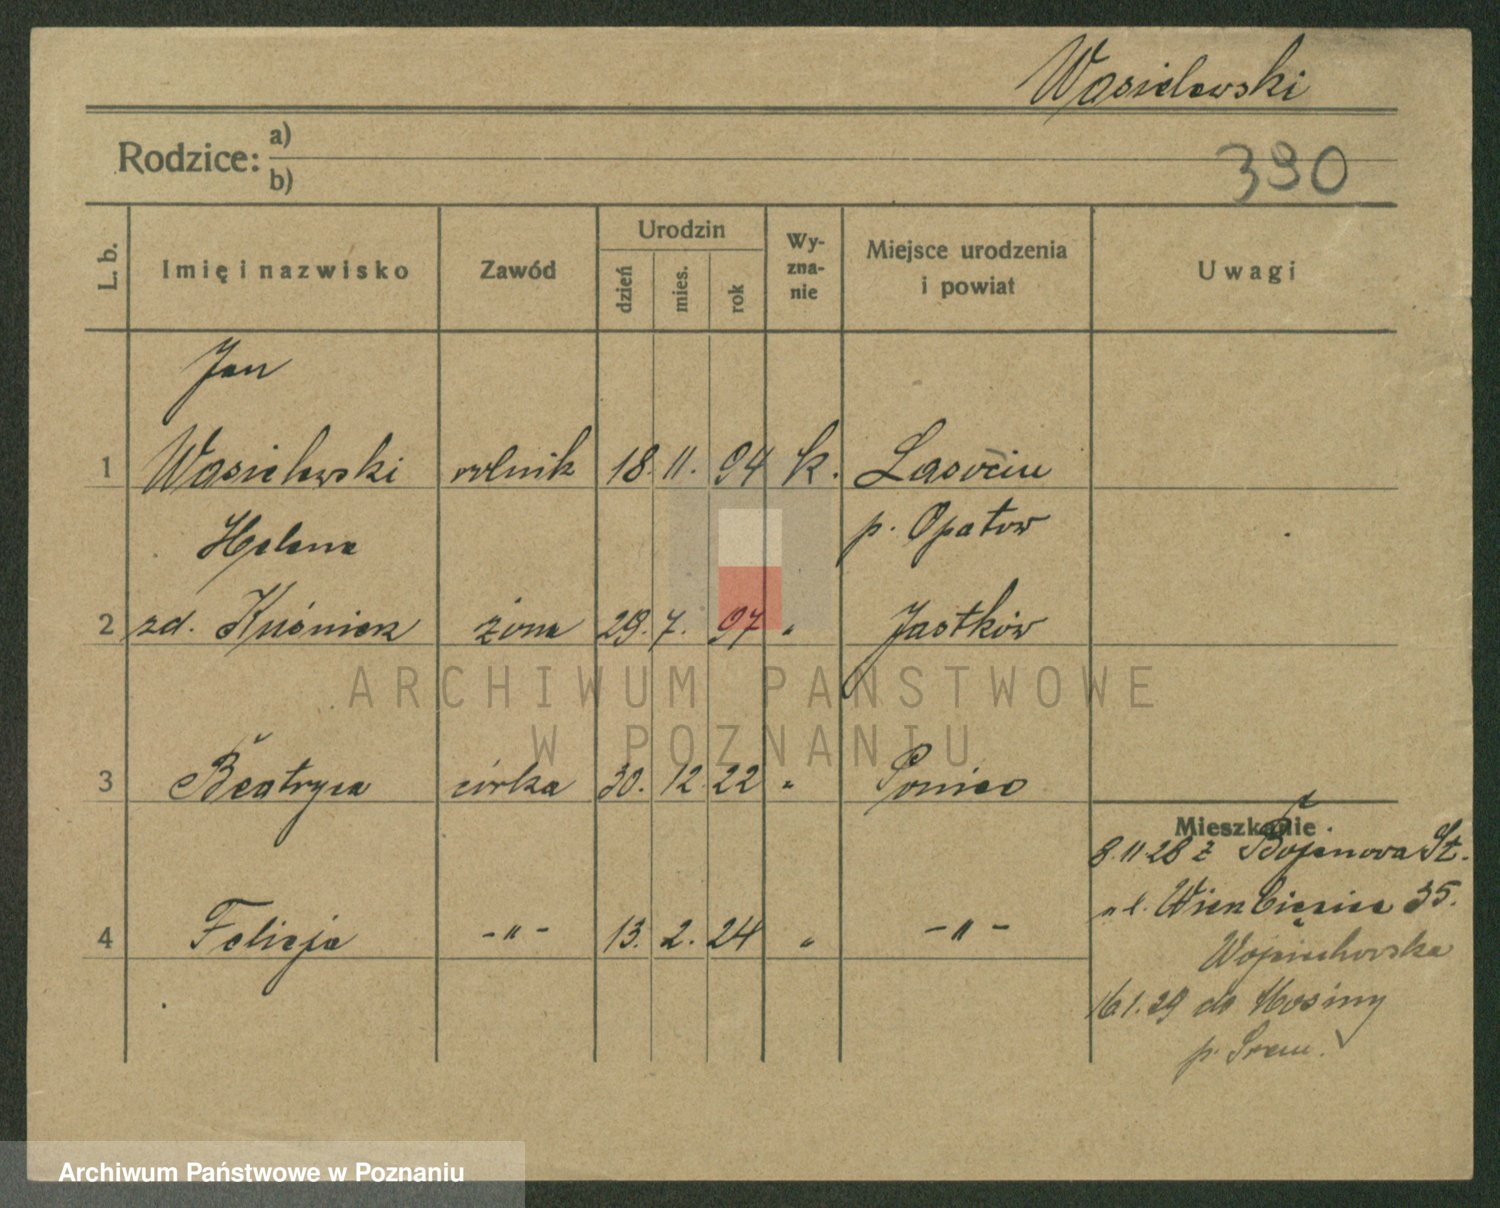 Wasielewski
Rodzice: a)
b)
390
L. b. Imię i nazwisko Zawód Urodzin dzień mies. rok Wy-zna-nie Miejsce urodzenia i powiat Uwagi
Jan
1 Wasielewski rolnik 18. 11. 94 k. Lasocin
Helena p. Opatow
2 zd. Kuśnierz żona 29. 7. 97 " Jastków
ARCHIWUM PAŃSTWOWE
W POZNANIU
3 Beatryca córka 30. 12. 22 " Poniec
Mieszkanie
8.11.28 z Bojanowa St.
ul. 35.
4 Felicja -"- 13. 2. 24 " -"-
Wojciechowska
16.1.29 do Mosiny
p. Śrem.
Archiwum Państwowe w Poznaniu